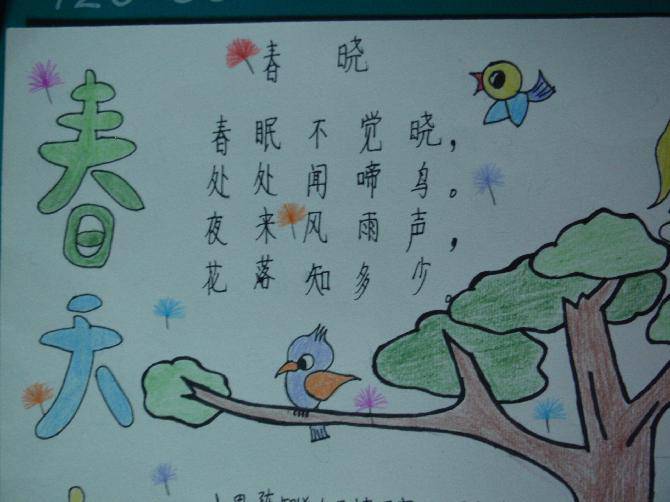 春天
春 晓
春眠不觉晓，
处处闻啼鸟。
夜来风雨声，
花落知多少。